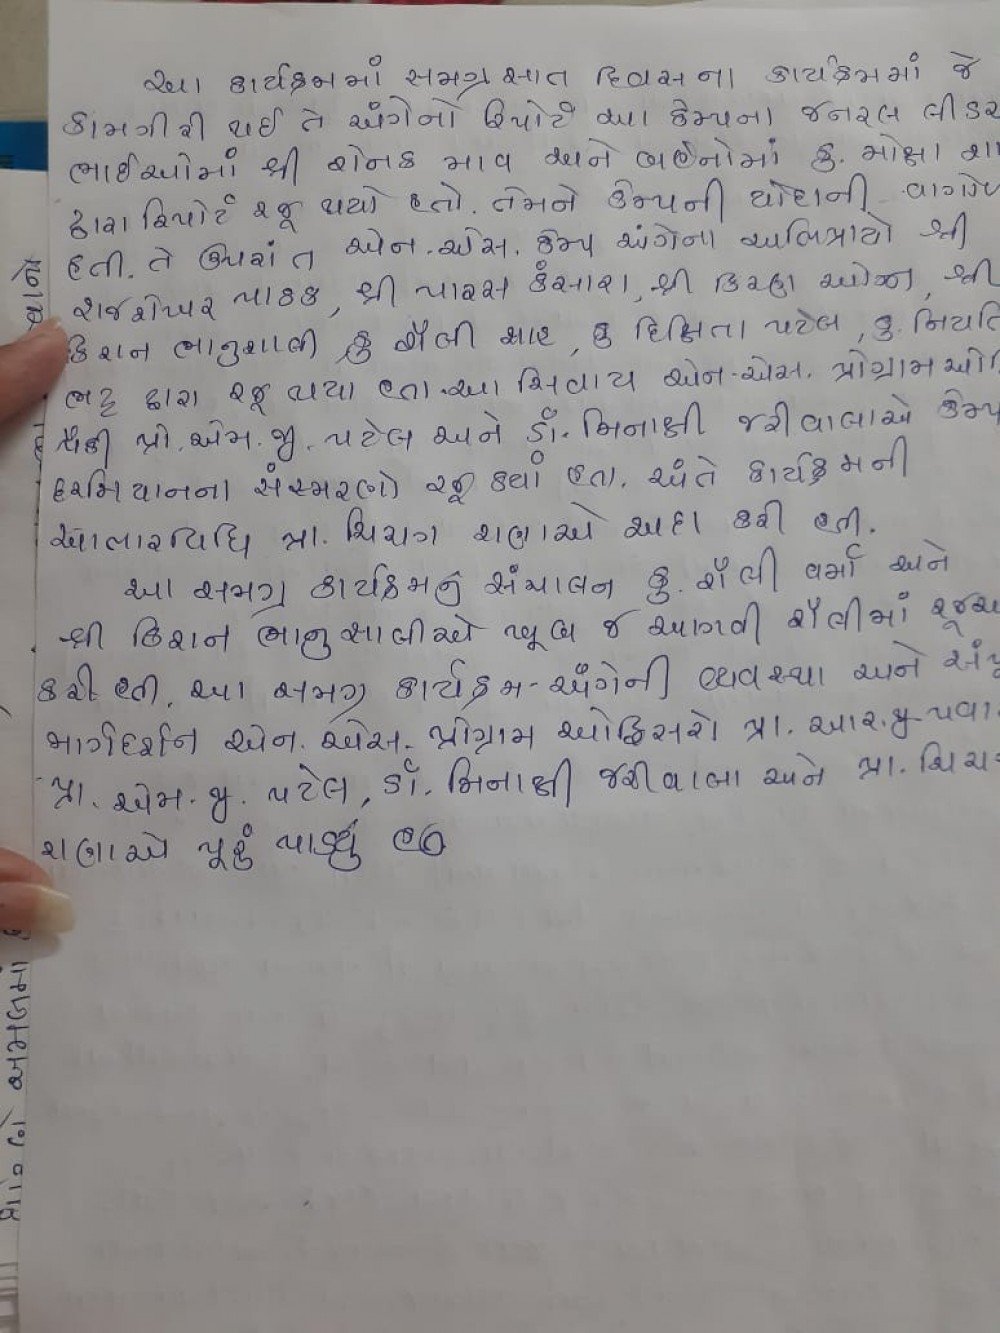 આ કાર્યક્રમમાં સમગ્ર સાત દિવસના કાર્યક્રમમાં જે
કામગીરી થઈ તે અંગેનો રિપોર્ટ આ કેમ્પના જનરલ લીડર
ભાઈઓમાં શ્રી રોનક માવ અને બહેનોમાં કુ. મોક્ષા શા
દ્વારા રિપોર્ટ રજૂ થયો હતો. તેમને કેમ્પની યાદોની વાગોળ
હતી. તે ઉપરાંત એન.એસ. કેમ્પ અંગેના અભિપ્રાયો શ્રી
રાજશેખર પાઠક, શ્રી પારસ કંસારા, શ્રી ઓઝા, શ્રી
કિશન ભાનુશાલી કુ શૈલી શાહ, કુ દિક્ષિતા પટેલ, કુ. નિયતિ
ભટ્ટ દ્વારા રજૂ થયા હતા. આ સિવાય એન-એસ. પ્રોગ્રામ ઓફિ
પૈકી પ્રો. એમ.જી. પટેલ અને ડૉ. મિનાક્ષી જરીવાલાએ કેમ્પ
દરમિયાનના સંસ્મરણો રજૂ કર્યાં હતા. અંતે કાર્યક્રમની
આભારવિધિ પ્રા. ચિરાગ રાણાએ અદા કરી હતી.
આ સમગ્ર કાર્યક્રમનું સંચાલન કુ. શૈલી વર્મા અને
શ્રી કિશન ભાનુસાલીએ ખૂબ જ આગવી શૈલીમાં રજૂઆ
કરી હતી. આ સમગ્ર કાર્યક્રમ-અંગેની વ્યવસ્થા અને સંપૂ
માર્ગદર્શન એન. એસ. પ્રોગ્રામ ઓફિસરો પ્રા. આર.જી. પવા
પ્રા. એમ.જી. પટેલ, ડૉ. મિનાક્ષી જરીવાલા અને પ્રા. ચિરા
રાણાએ પૂરું પાડ્યું હતું